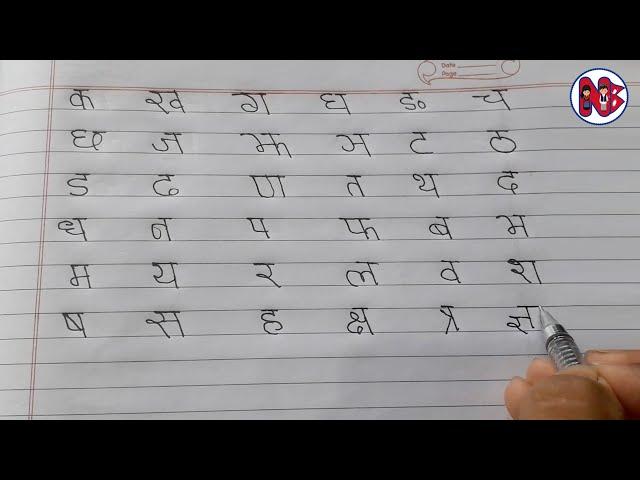 Date
Page
क ख ग घ ङ च
छ ज झ ञ ट ठ
ड ढ ण त थ द
ध न प फ ब भ
म य र ल व श
ष स ह क्ष त्र ज्ञ
NB